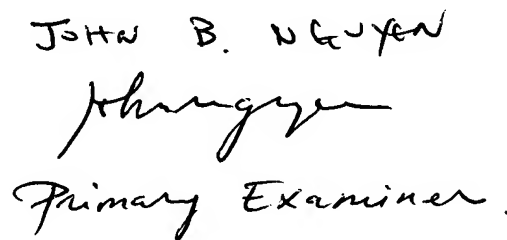 JOHN B. NGUYEN
John Nguyen
Primary Examiner.